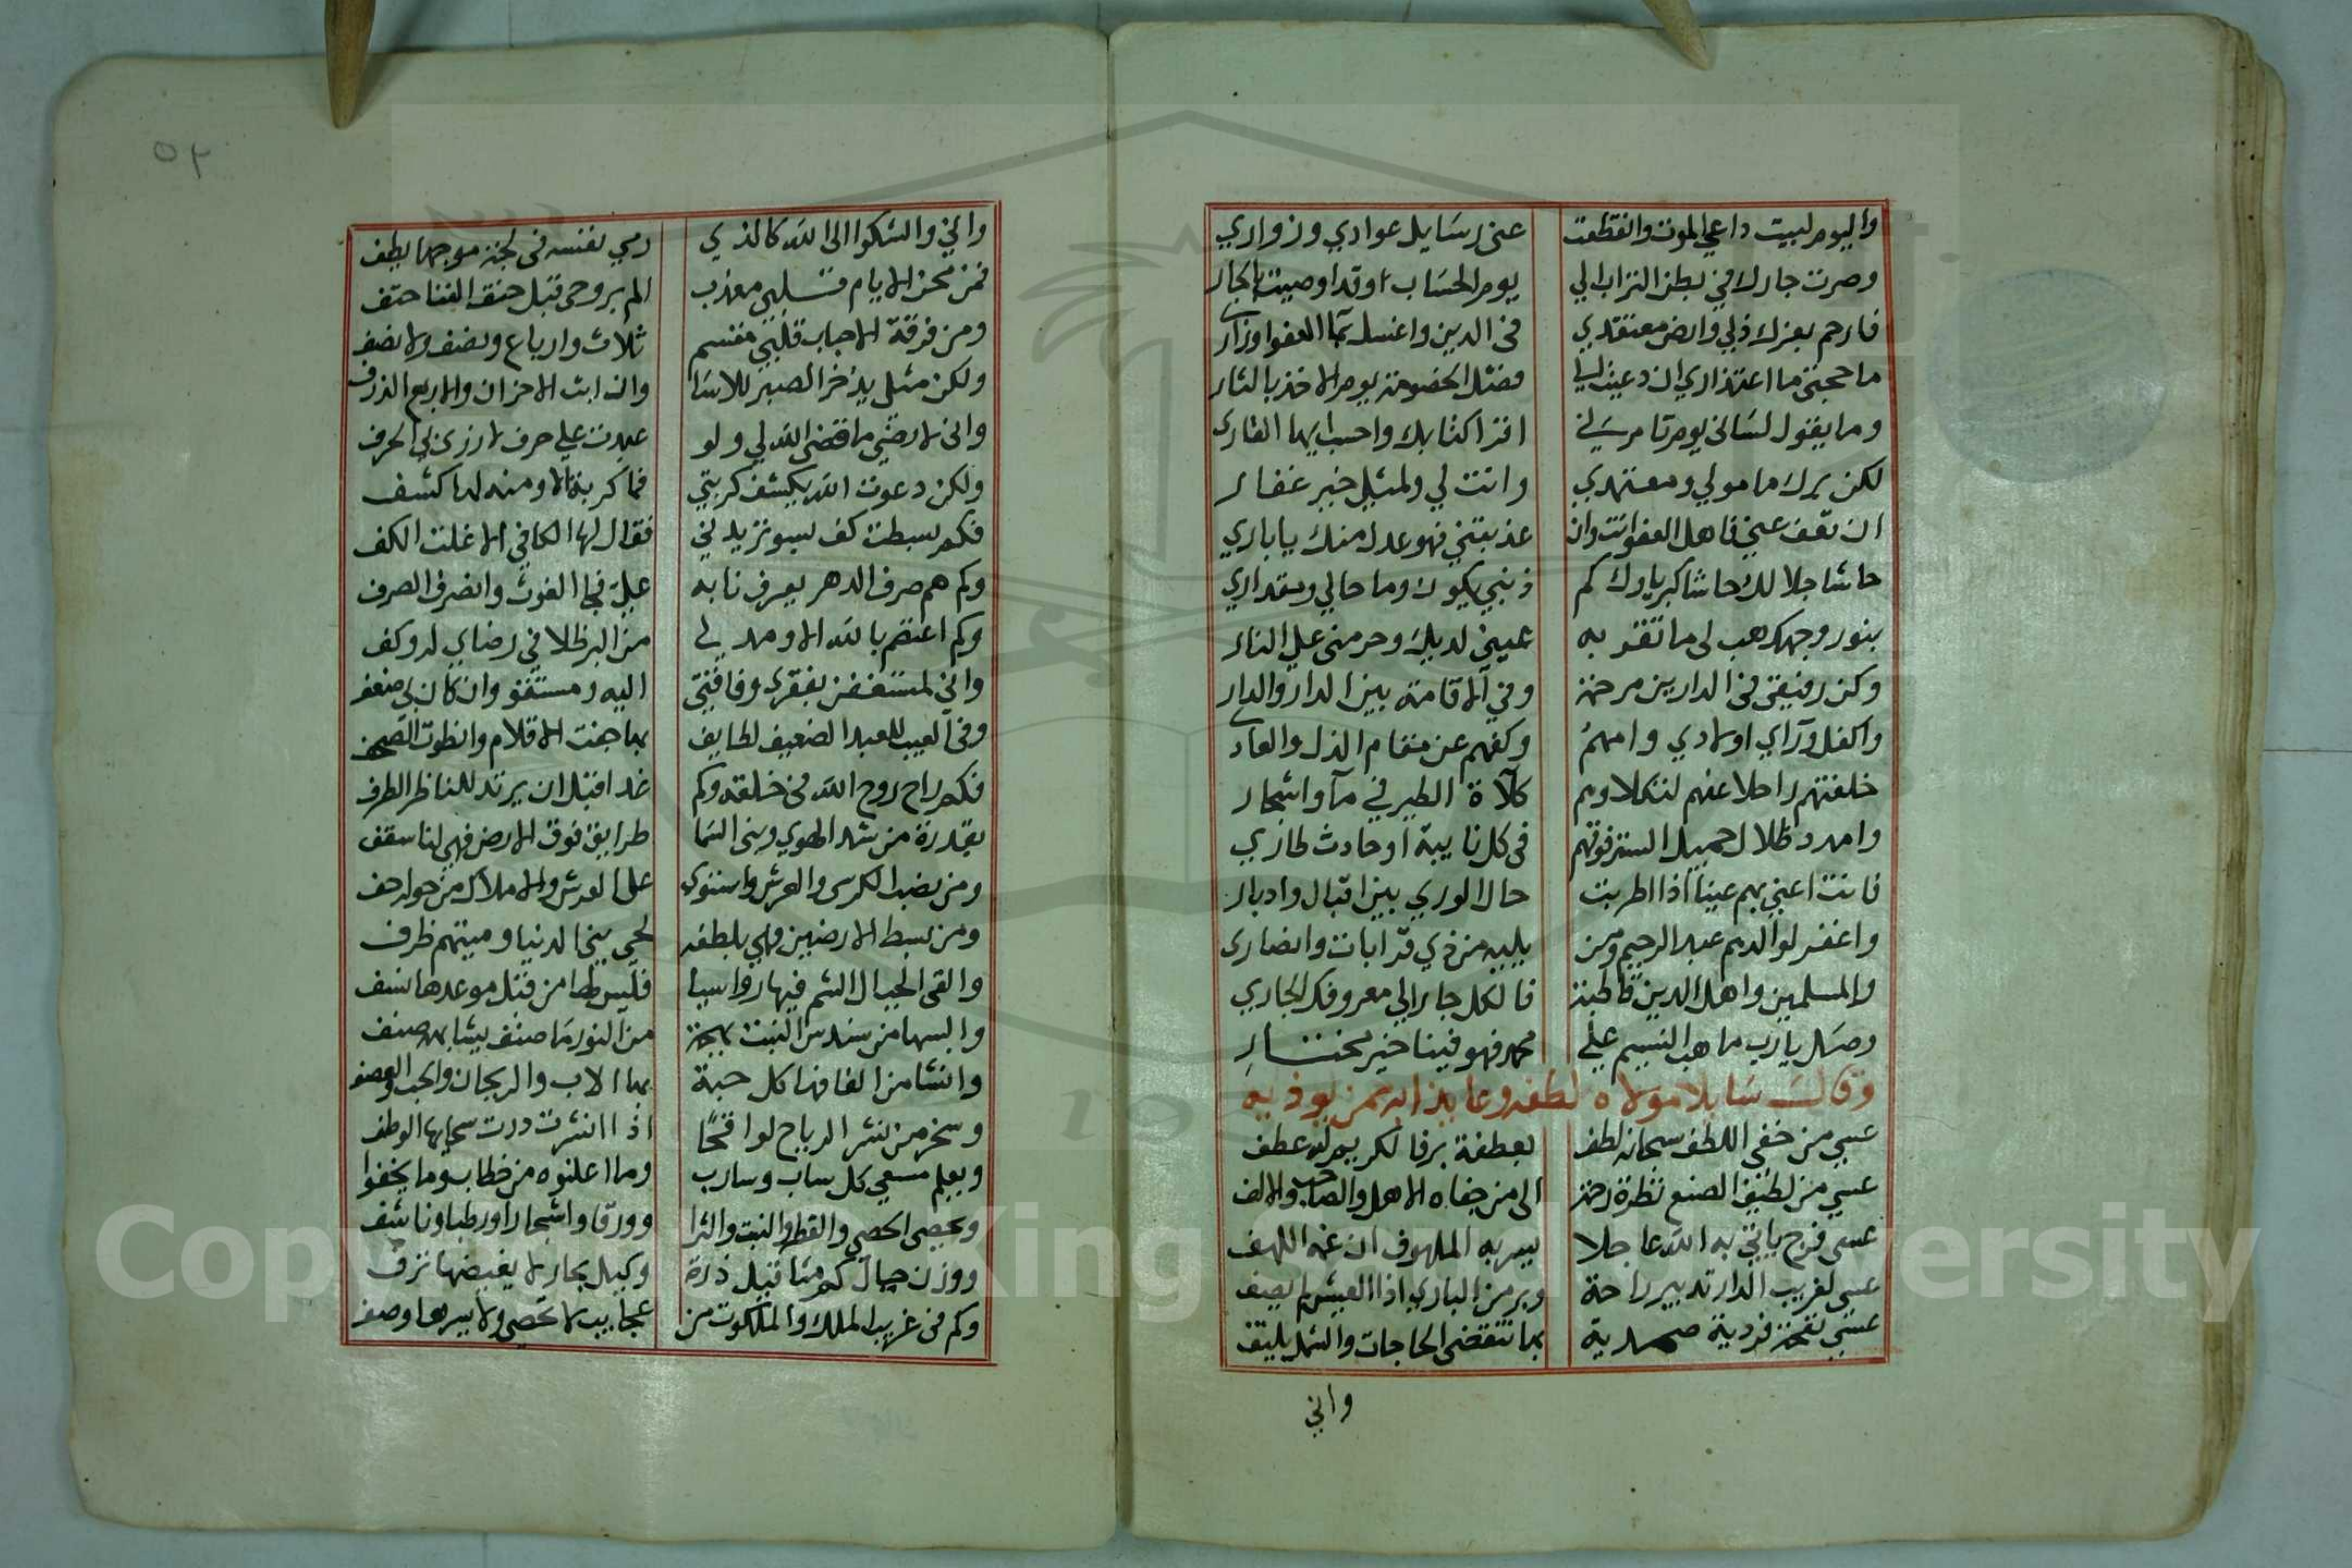 واليوم لبيت داعي الموت وانقطعت عني رسايل عوادي وزواري
وصرت جارك في بطن التراب الي يوم الحساب وقد اوصيت بالجار
فارحم بعزك ذلي وارض معتقدي في الدين واغسل بماء العفو اوزاري
ما حجتي ما اعتذاري ان دعيت ليا فصل الخصومة يوم الاخذ بالثار
وما يقول لساني يوم تامر لي اقرا كتابك واحسب ايها القاري
لكن برك مامولي ومعتمدي وانت لي ولمثلي خير غفار
ان تعف عني فاهل العفو انت وان عذبتني فهو عدل منك يا باري
حاشا جلالك حاشا كبرياءك كم ذنبي يكون وما حالي ومقداري
بنور وجهك هب لي ما تقر به عيني لديك وحرمني علي النار
وكن رفيقي في الدارين مرحمة وفي الاقامة بين الدار والدار
واكفل وراي اولادي وامهم وكفهم عن مقام الذل والعار
خلفتهم راحلا عنهم لتكلاهم كلاة الطير في مآ واشجار
وامدد ظلال جميل الستر فوقهم في كل نايبة او حادث طاري
فانت اعني بهم عينا اذا اطربت حال الوري بين اقبال وادبار
واغفر لوالدهم عبد الرحيم ومن يليه من ذي قرابات وانصاري
والمسلمين واهل الدين قاطبة فالكل جار الي معروفك الجاري
وصل يارب ما هب النسيم علي محمد فهو فينا خير مختار
وقال سايلا مولاه لطفه وعايذا به ممن يوذيه
عسي من خفي اللطف سبحانه لطف بعطفة بر فالكريم له عطف
عسي من لطيف الصنع نظرة رحمة الى من جفاه الاهل والصاحب والالف
عسى فرج ياتي به الله عاجلا يسر به الملهوف ان عمه اللهف
عسى لغريب الدار تدبير راحة وبر من الباري اذا العيش لم يصف
عسى نفحة فردية صمدية بها تنقضي الحاجات والشمل يلتف
واني
٥٢
واني والشكوا الى الله كالذي رمي بنفسه في لجة موجها يطف
فمن محن الايام قلبي معذب الم بروحي قبل حتف الفنا حتف
ومن فرقة الاحباب قلبي مقسم ثلاث وارباع ونصف ولا نصف
ولكن مثلي يذخر الصبر للاسا وان ابت الاحزان والاربع الذرف
واني لارضي ما قضى الله لي ولو عبدت علي حرف لازري بي الحرف
ولكن دعوت الله يكشف كربتي فما كربة الا ومنه لها كشف
فكم بسطت كف بسو تريدني فقال لها الكافي الا غلت الكف
وكم هم صرف الدهر يصرف نابه علي فجا الغوث وانصرف الصرف
وكم اعتصم بالله الا ومد لي من البر ظلا في رضاي له وكف
واني لمستغن بفقري وفاقتي اليه ومستقو وان كان بي ضعف
وفي الغيب للعبد الضعيف لطايف بها جفت الاقلام وانطوت الصحف
فكم راح روح الله في خلقه وكم غدا قبل ان يرتد للناظر الطرف
بقدرة من شد الهوي وبنى السما طرايق فوق الارض فهي لنا سقف
ومن نصب الكرسي والعرش واستوى على العرش والاملاك من حوله حف
ومن بسط الارضين فهي بلطفه لحي بني الدنيا وميتهم ظرف
والقى الجبال الشم فيها رواسيا فليس لها من قبل موعدها نسف
والبسها من سندس النبت بهجة من النور ما صنف يشابهه صنف
وانشا من الفافها كل حبة بها الاب والريحان والحب والعصف
وسخر من نشر الرياح لواقحا اذا انتشرت درت سحايبها الوطف
ويعلم مسعي كل سار وسارب وما اعلنوه من خطاب وما يخفوا
ويحصى الحصى والقطر والنبت والثرا وورقا واشجارا ورطبا وناشف
ووزن جبال كم مثاقيل ذرة وكيل بحار لا يغيضها نزف
وكم في غريب الملك والملكوت من عجايب لا تحصي ولا يبرها وصف
Copyright © King Saud University